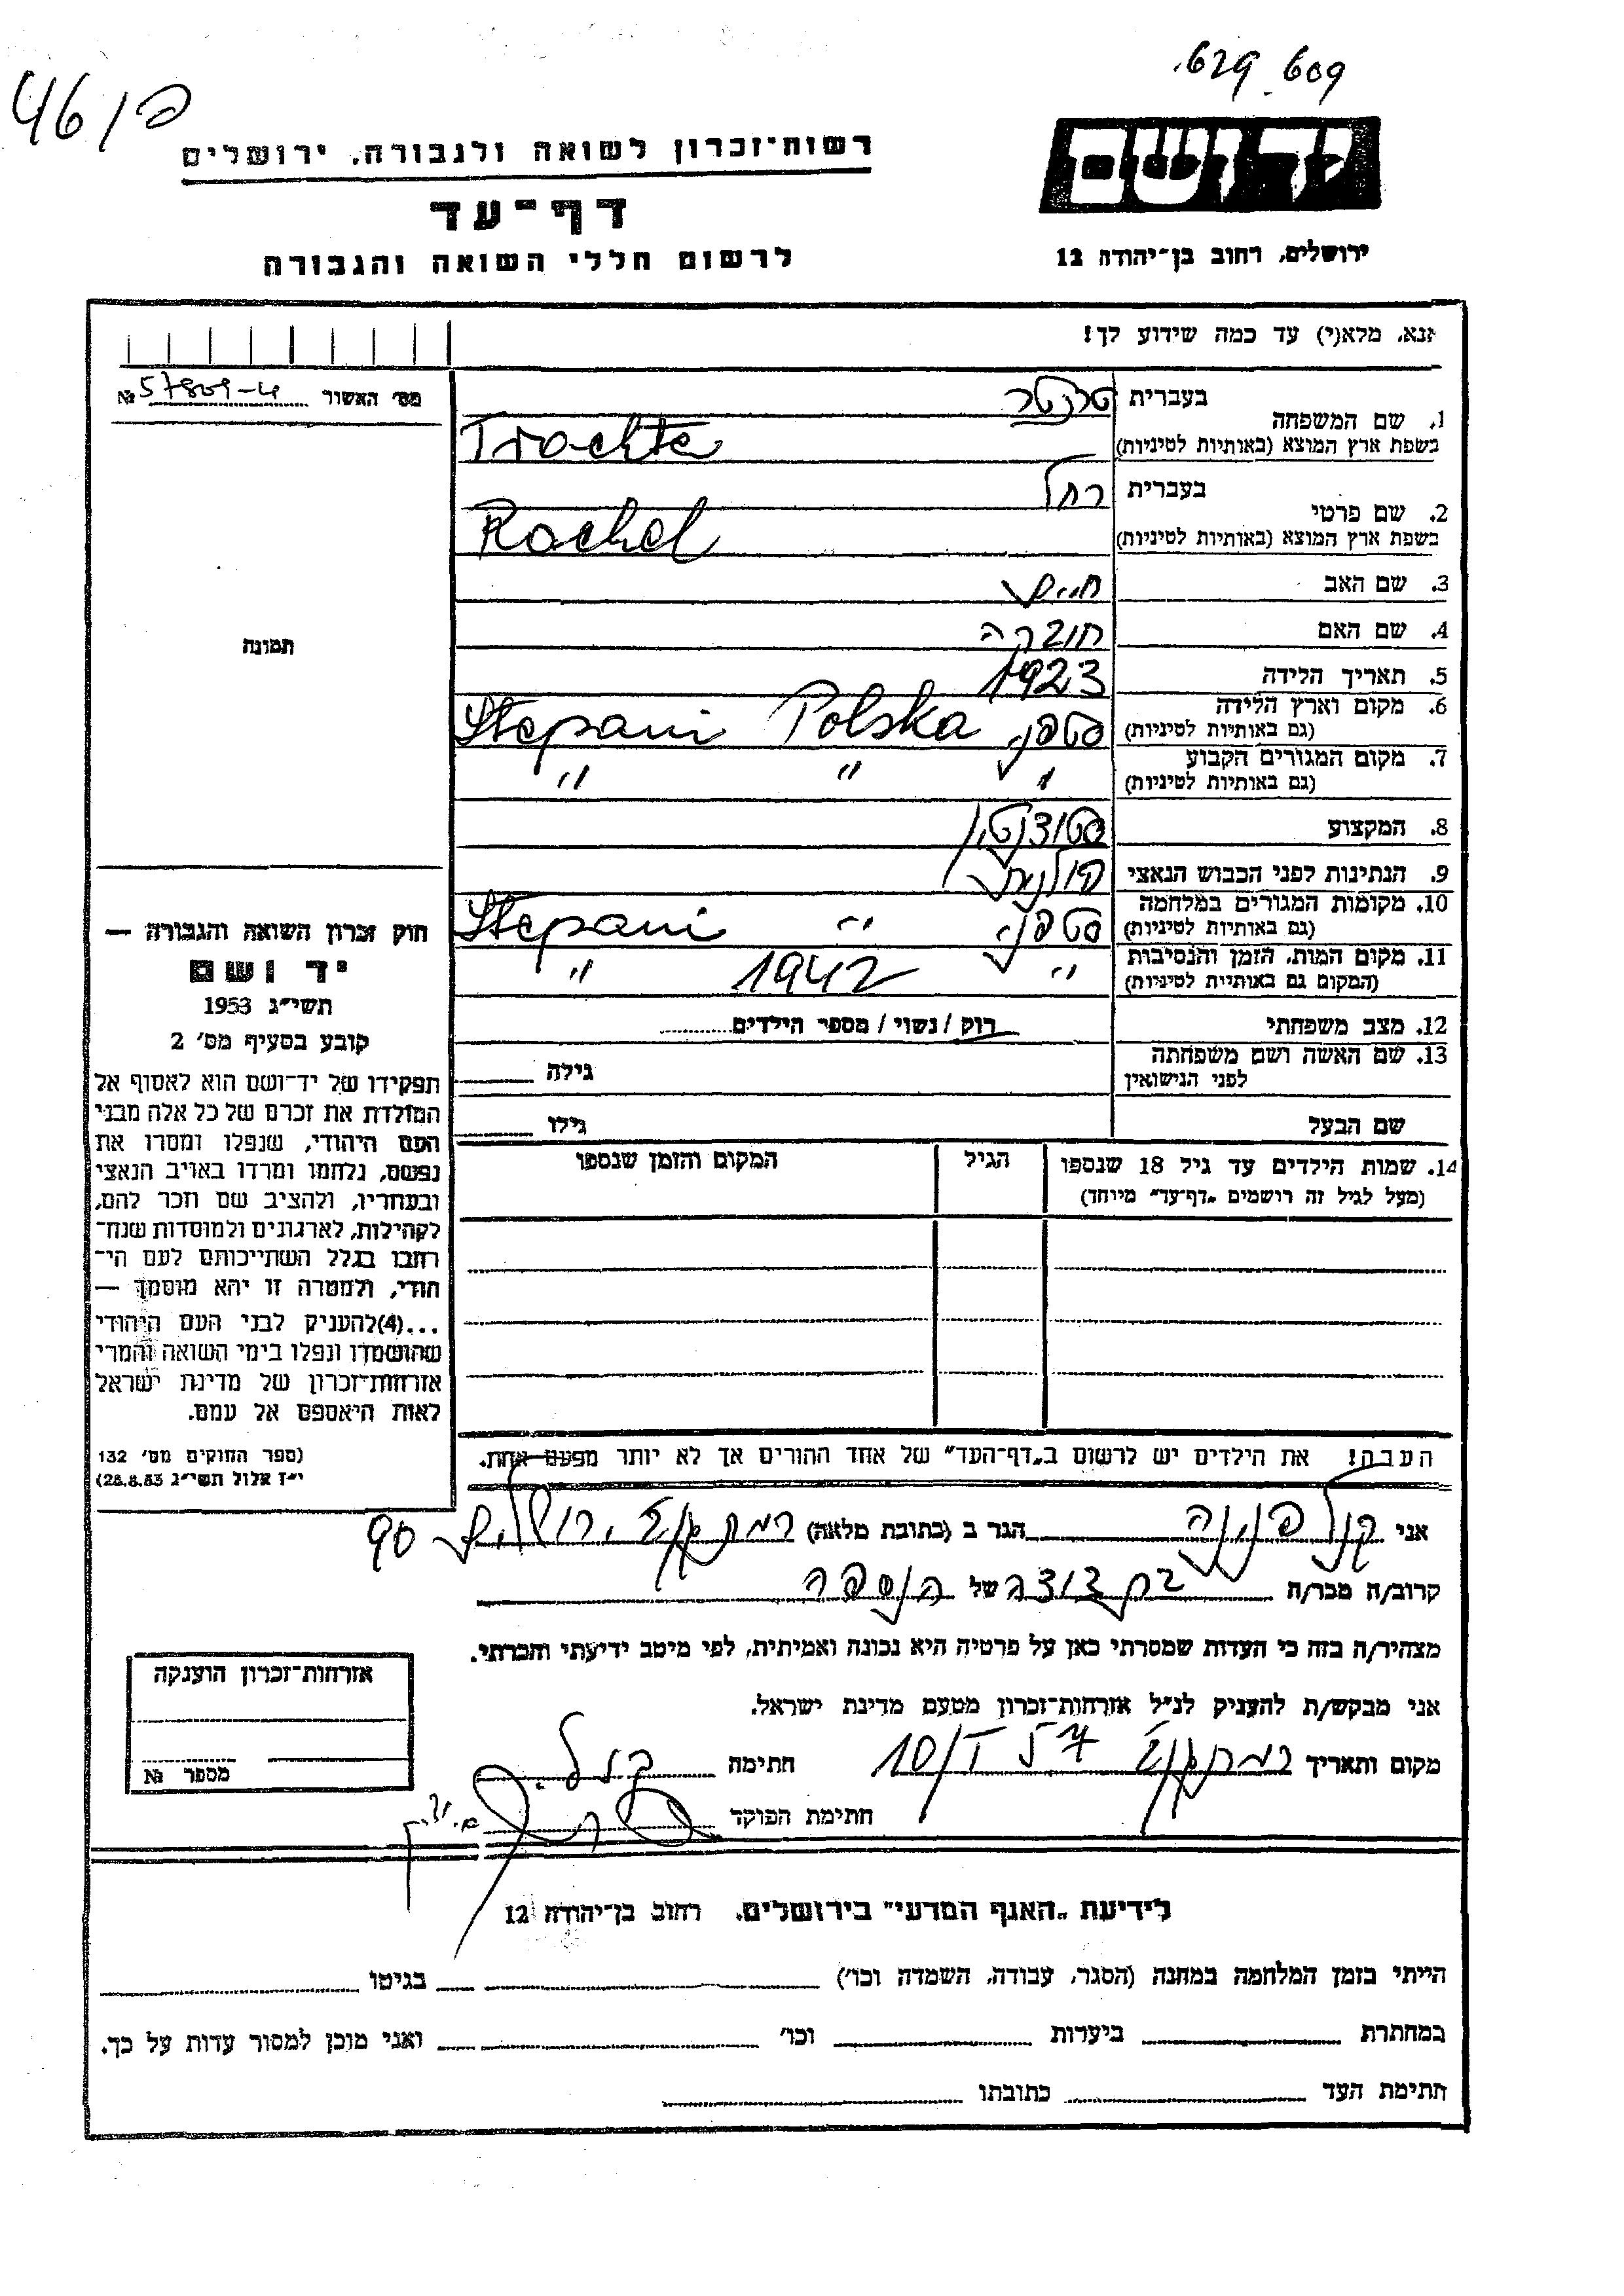 629.609
46/פ
רשות־זכרון לשואה ולגבורה, ירושלים
דף־עד
לרשום חללי השואה והגבורה
יד ושם
ירושלים, רחוב בן־יהודה 12
אנא, מלא(י) עד כמה שידוע לך!
מס׳ האשור № 57809-4
תמונה
1. שם המשפחה בעברית טרכטר
בשפת ארץ המוצא (באותיות לטיניות) Trachte
2. שם פרטי בעברית רחל
בשפת ארץ המוצא (באותיות לטיניות) Rachel
3. שם האב חיים
4. שם האם
5. תאריך הלידה 1923
6. מקום וארץ הלידה (גם באותיות לטיניות) סטפני Stepani Polska
7. מקום המגורים הקבוע (גם באותיות לטיניות) " " "
8. המקצוע סטודנטית
9. הנתינות לפני הכבוש הנאצי פולנית
10. מקומות המגורים במלחמה (גם באותיות לטיניות) סטפני " Stepani
11. מקום המות, הזמן והנסיבות (המקום גם באותיות לטיניות) " 1942 "
12. מצב משפחתי רוק / נשוי / מספר הילדים
13. שם האשה ושם משפחתה לפני הנישואין גילה
שם הבעל גילו
14. שמות הילדים עד גיל 18 שנספו הגיל המקום והזמן שנספו
(מעל לגיל זה רושמים „דף־עד" מיוחד)
חוק זכרון השואה והגבורה —
יד ושם
תשי״ג 1953
קובע בסעיף מס׳ 2
תפקידו של יד־ושם הוא לאסוף אל
המולדת את זכרם של כל אלה מבני
העם היהודי, שנפלו ומסרו את
נפשם, נלחמו ומרדו באויב הנאצי
ובעוזריו, ולהציב שם וזכר להם,
לקהילות, לארגונים ולמוסדות שנח־
רבו בגלל השתייכותם לעם הי־
הודי, ולמטרה זו יהא מוסמך —
...(4) להעניק לבני העם היהודי
שהושמדו ונפלו בימי השואה והמרי
אזרחות־זכרון של מדינת ישראל
לאות היאספם אל עמם.
(ספר החוקים מס׳ 132
י״ז אלול תשי״ג 28.8.53)
הערה! את הילדים יש לרשום ב„דף־העד" של אחד ההורים אך לא יותר מפעם אחת.
אני קול פנינה הגר ב (כתובת מלאה) ירושלים 90
קרוב/ה מכר/ה בת דודה של הנספה
מצהיר/ה בזה כי העדות שמסרתי כאן על פרטיה היא נכונה ואמיתית, לפי מיטב ידיעתי והכרתי.
אני מבקש/ת להעניק לנ״ל אזרחות־זכרון מטעם מדינת ישראל.
מקום ותאריך 10/I 57 חתימה
חתימת הפוקד
אזרחות־זכרון הוענקה
מספר №
לידיעת „האגף המדעי" בירושלים, רחוב בן־יהודה 12
הייתי בזמן המלחמה במחנה (הסגר, עבודה, השמדה וכו׳) בגיטו
במחתרת ביערות וכו׳ ואני מוכן למסור עדות על כך.
חתימת העד כתובתו